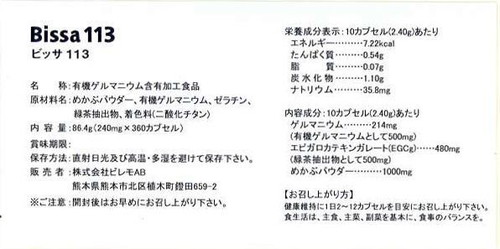 Bissa 113
ビッサ 113
名　　称：有機ゲルマニウム含有加工食品
原材料名：めかぶパウダー、有機ゲルマニウム、ゼラチン、
緑茶抽出物、着色料(二酸化チタン)
内 容 量：86.4g(240mg×360カプセル)
賞味期限：
保存方法：直射日光及び高温・多湿を避けて保存して下さい。
販 売 者：株式会社ビレモAB
熊本県熊本市北区植木町鐙田659-2
※ご注意：開封後はお早めにお召し上がり下さい。
栄養成分表示：10カプセル(2.40g)あたり
エネルギー………7.22kcal
たんぱく質………0.54g
脂　　質………0.07g
炭水化物………1.10g
ナトリウム………35.8mg
内容成分：10カプセル(2.40g)あたり
ゲルマニウム………214mg
(有機ゲルマニウムとして500mg)
エピガロカテキンガレート(EGCg)……480mg
(緑茶抽出物として500mg)
めかぶパウダー………1000mg
【お召し上がり方】
健康維持に1日2～12カプセルを目安にお召し上がり下さい。
食生活は、主食、主菜、副菜を基本に、食事のバランスを。